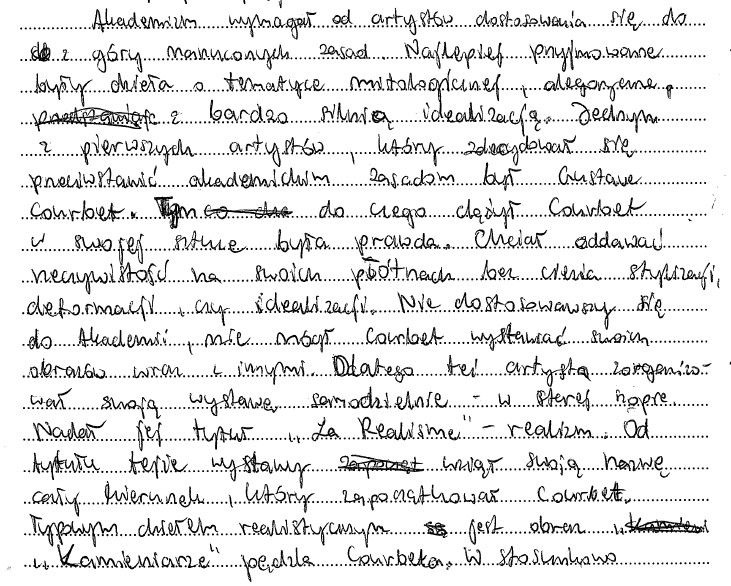 Akademizm wymagał od artystów dostosowania się do
z góry narzuconych zasad. Najlepiej przyjmowane
były dzieła o tematyce mitologicznej, alegoryczne,
przedstawiające z bardzo silnią idealizacją. Jednym
z pierwszych artystów, który zdecydował się
przeciwstawić akademickim zasadom był Gustave
Courbet. Tym co dne do czego dążył Courbet
w swojej sztuce była prawda. Chciał oddawać
rzeczywistość na swoich płótnach bez cienia stylizacji,
deformacji, czy idealizacji. Nie dostosowawszy się
do Akademii, nie mógł Courbet wystawiać swoich
obrazów wraz z innymi. Dlatego też artysta zorganizo-
wał swoją wystawę samodzielnie - w sterej
Nadał jej tytuł "La Realisme" - realizm. Od
tytułu tejże wystawy zapoząt wziął swoją nazwę
cały kierunek, który zapoczątkował Courbet.
Typowym dziełem realistycznym są jest obraz "Kamieni
"Kamieniarze" pędzla Courbeta. W stosunkowo